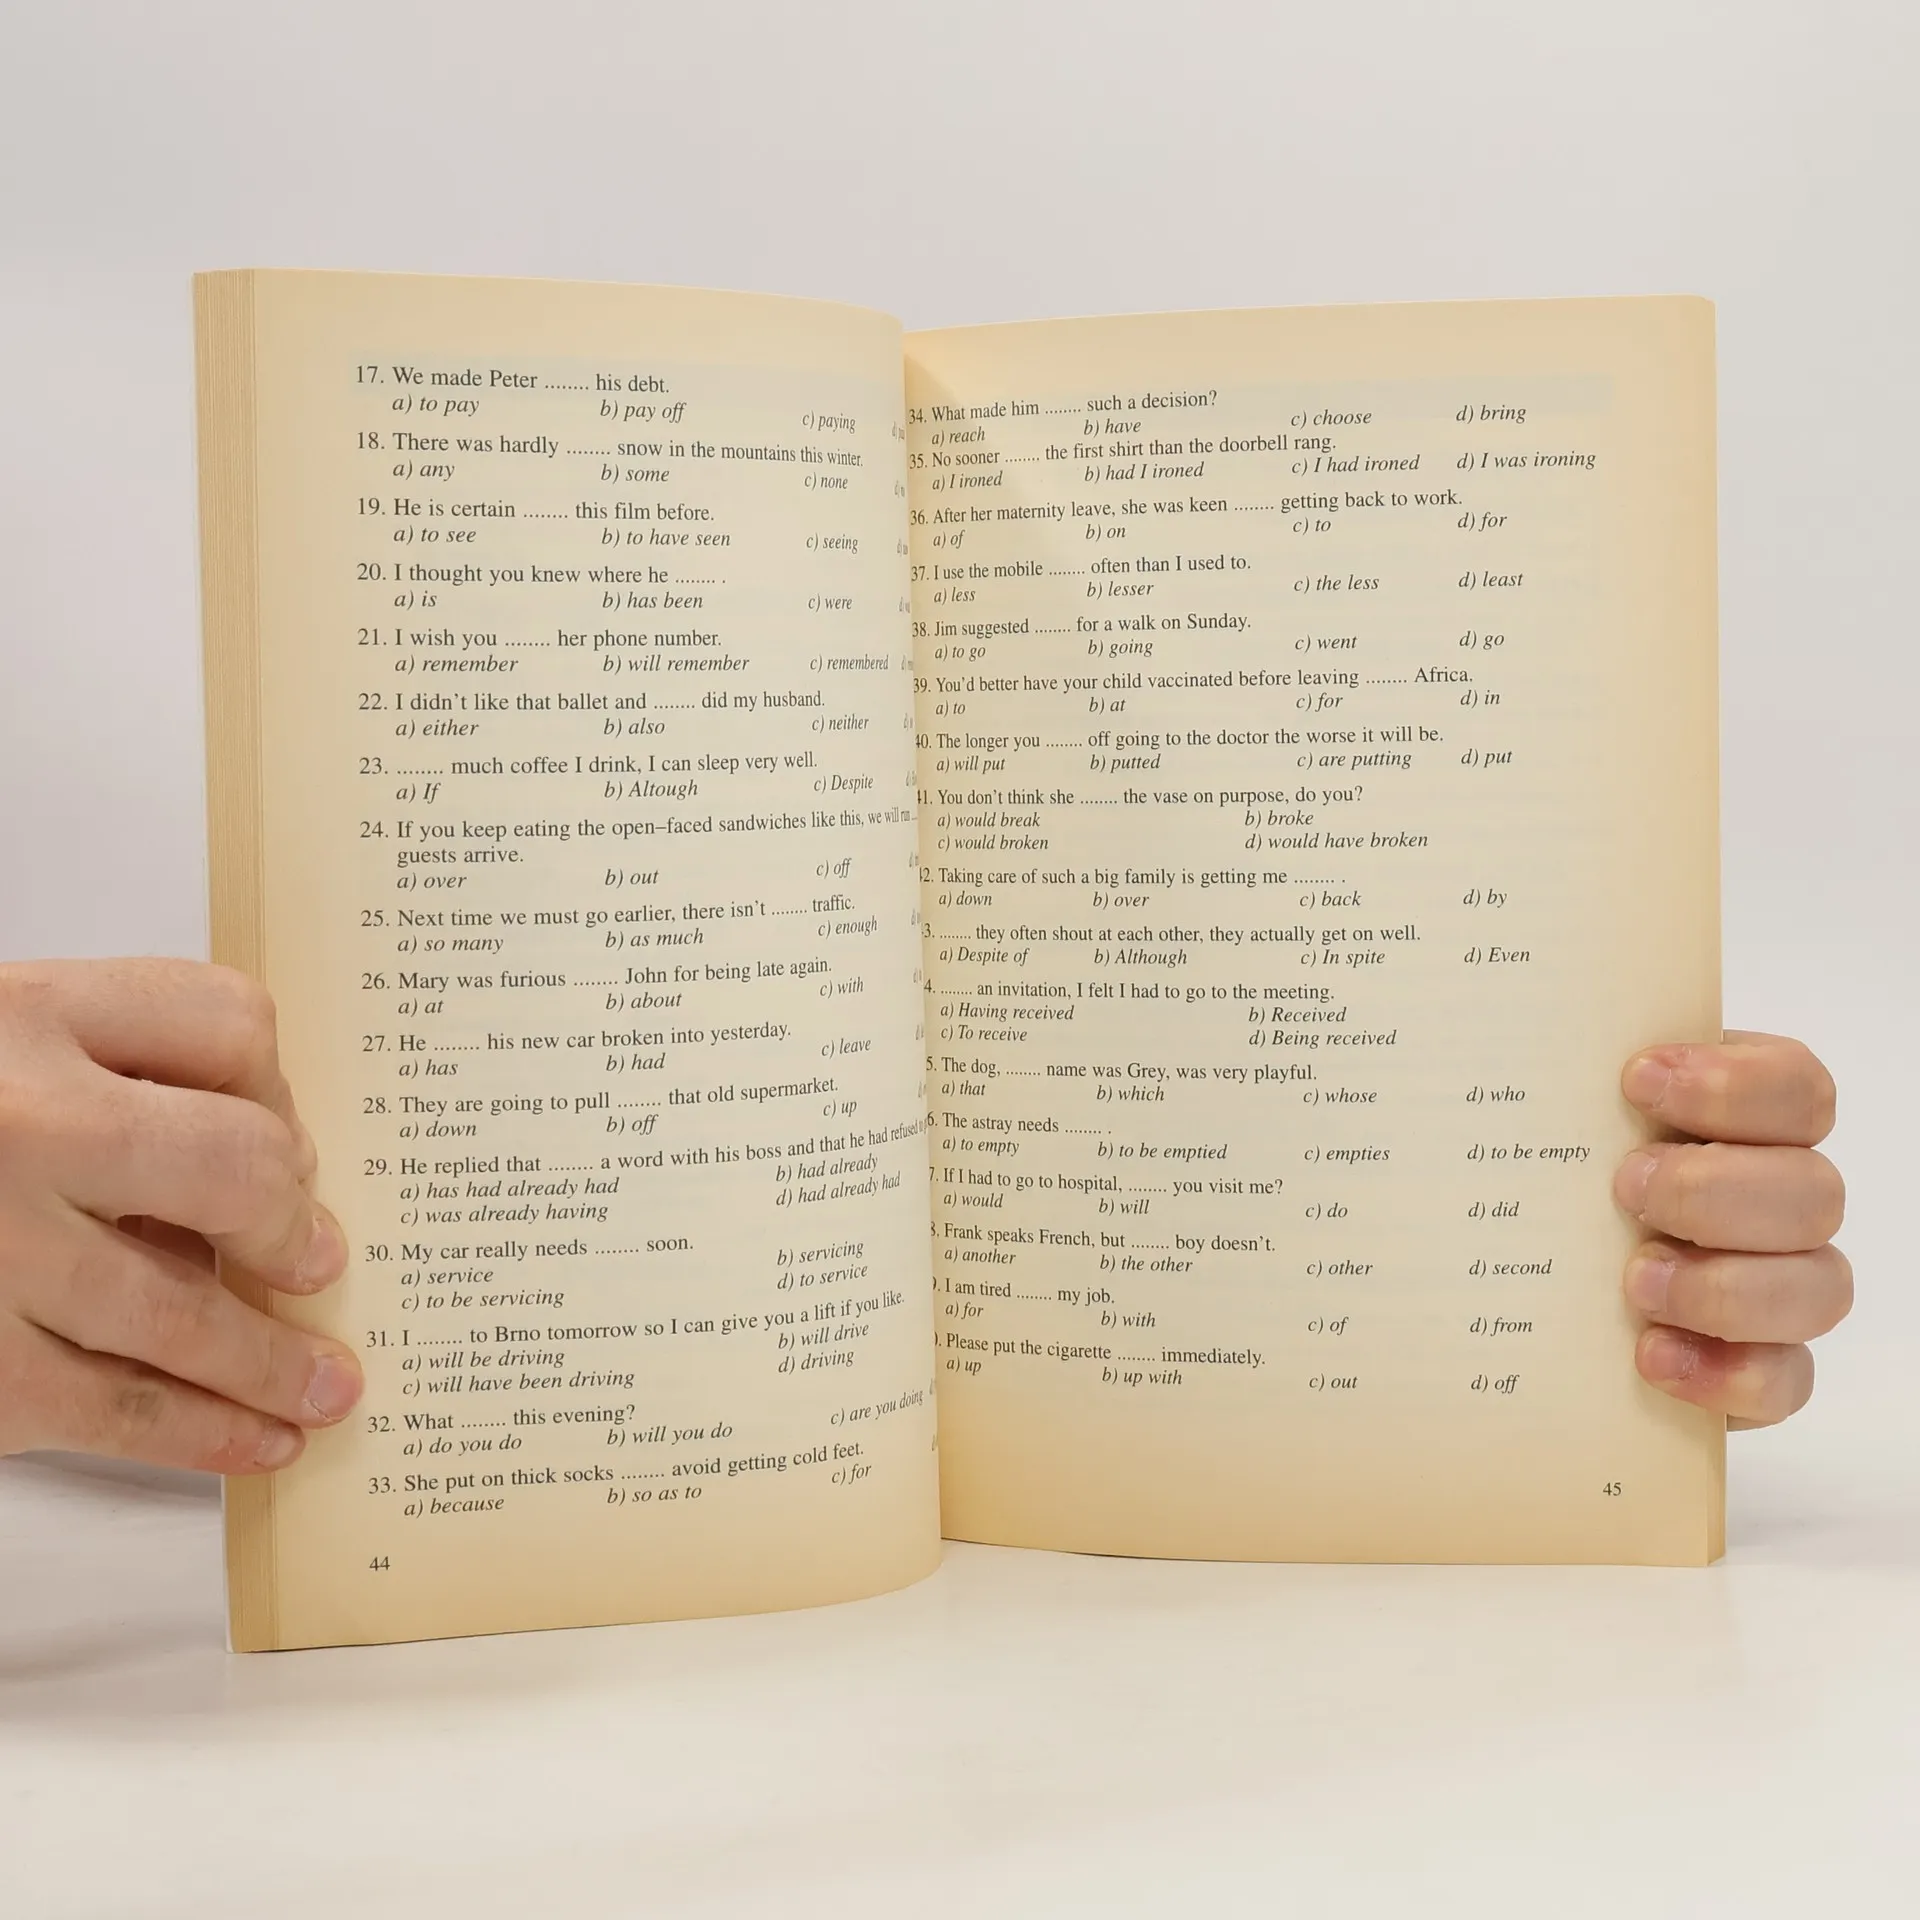 17. We made Peter ........ his debt.
a) to pay b) pay off c) paying
18. There was hardly ........ snow in the mountains this winter.
a) any b) some c) none
19. He is certain ........ this film before.
a) to see b) to have seen c) seeing
20. I thought you knew where he ........ .
a) is b) has been c) were
21. I wish you ........ her phone number.
a) remember b) will remember c) remembered
22. I didn't like that ballet and ........ did my husband.
a) either b) also c) neither
23. ........ much coffee I drink, I can sleep very well.
a) If b) Altough c) Despite
24. If you keep eating the open–faced sandwiches like this, we will run ...
guests arrive.
a) over b) out c) off
25. Next time we must go earlier, there isn't ........ traffic.
a) so many b) as much c) enough
26. Mary was furious ........ John for being late again.
a) at b) about c) with
27. He ........ his new car broken into yesterday.
a) has b) had c) leave
28. They are going to pull ........ that old supermarket.
a) down b) off c) up
29. He replied that ........ a word with his boss and that he had refused
a) has had already had b) had already
c) was already having d) had already had
30. My car really needs ........ soon.
a) service b) servicing
c) to be servicing d) to service
31. I ........ to Brno tomorrow so I can give you a lift if you like.
a) will be driving b) will drive
c) will have been driving d) driving
32. What ........ this evening?
a) do you do b) will you do c) are you doing
33. She put on thick socks ........ avoid getting cold feet.
a) because b) so as to c) for
44
34. What made him ........ such a decision?
a) reach b) have c) choose d) bring
35. No sooner ........ the first shirt than the doorbell rang.
a) I ironed b) had I ironed c) I had ironed d) I was ironing
36. After her maternity leave, she was keen ........ getting back to work.
a) of b) on c) to d) for
37. I use the mobile ........ often than I used to.
a) less b) lesser c) the less d) least
38. Jim suggested ........ for a walk on Sunday.
a) to go b) going c) went d) go
39. You'd better have your child vaccinated before leaving ........ Africa.
a) to b) at c) for d) in
40. The longer you ........ off going to the doctor the worse it will be.
a) will put b) putted c) are putting d) put
41. You don't think she ........ the vase on purpose, do you?
a) would break b) broke
c) would broken d) would have broken
2. Taking care of such a big family is getting me ........ .
a) down b) over c) back d) by
3. ........ they often shout at each other, they actually get on well.
a) Despite of b) Although c) In spite d) Even
4. ........ an invitation, I felt I had to go to the meeting.
a) Having received b) Received
c) To receive d) Being received
5. The dog, ........ name was Grey, was very playful.
a) that b) which c) whose d) who
6. The astray needs ........ .
a) to empty b) to be emptied c) empties d) to be empty
7. If I had to go to hospital, ........ you visit me?
a) would b) will c) do d) did
8. Frank speaks French, but ........ boy doesn't.
a) another b) the other c) other d) second
. I am tired ........ my job.
a) for b) with c) of d) from
. Please put the cigarette ........ immediately.
a) up b) up with c) out d) off
45